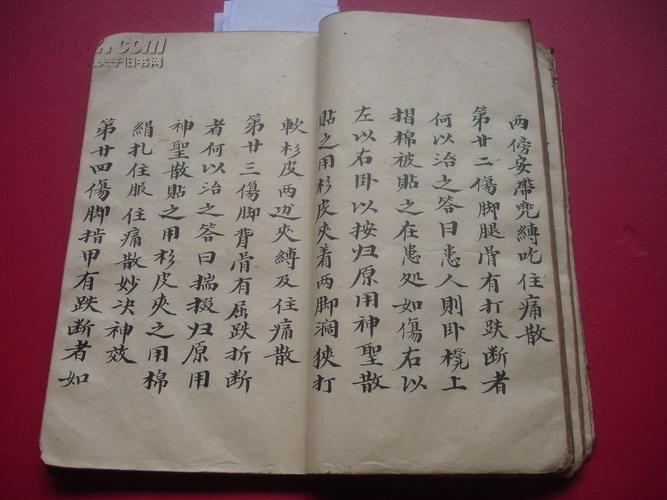 两傍安带兜縛吃住痛散
第廿二傷脚腿骨有打跌断者
何以治之答曰患人則卧櫈上
摺棉被貼之在患処如傷右以
左以右卧以按归原用神聖散
貼之用杉皮夾着两脚濶狹打
軟杉皮两边夾縛及住痛散
第廿三傷脚背骨有屈跌折断
者何以治之答曰揣掇归原用
神聖散貼之用杉皮夾之用棉
絹扎住服住痛散妙决神效
第廿四傷脚指甲有跌断者如